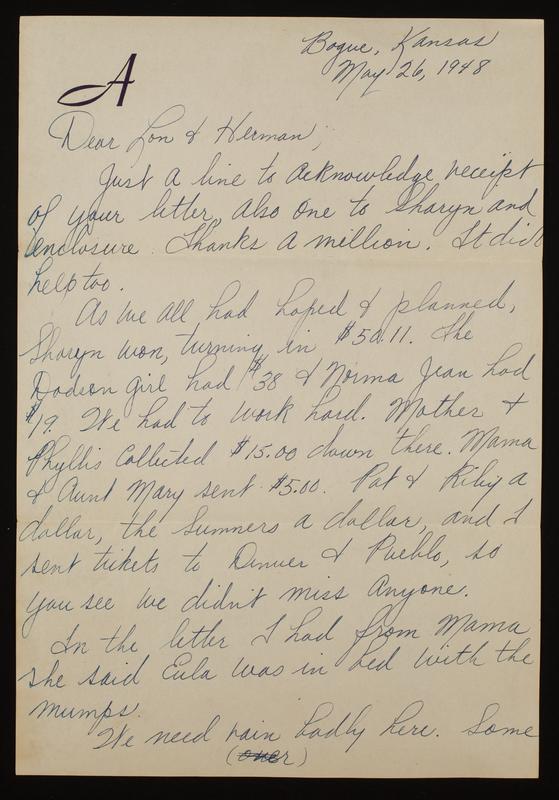 Bogue, Kansas
May 26, 1948
A
Dear Lon & Herman;
Just a line to acknowledge receipt
of your letter, also one to Sharyn and
enclosure. Thanks a million. It did
help too.
As we all had hoped & planned,
Sharyn won, turning in $50.11. The
Dodson girl had $38 & Norma Jean had
$19. We had to work hard. Mother &
Phyllis collected $15.00 down there. Mama
& Aunt Mary sent $5.00. Pat & Riby a
dollar, the Sumners a dollar, and I
sent tickets to Denver & Pueblo, so
you see we didn't miss anyone.
In the letter I had from Mama
she said Eula was in bed with the
mumps.
We need rain badly here. Some
(over)